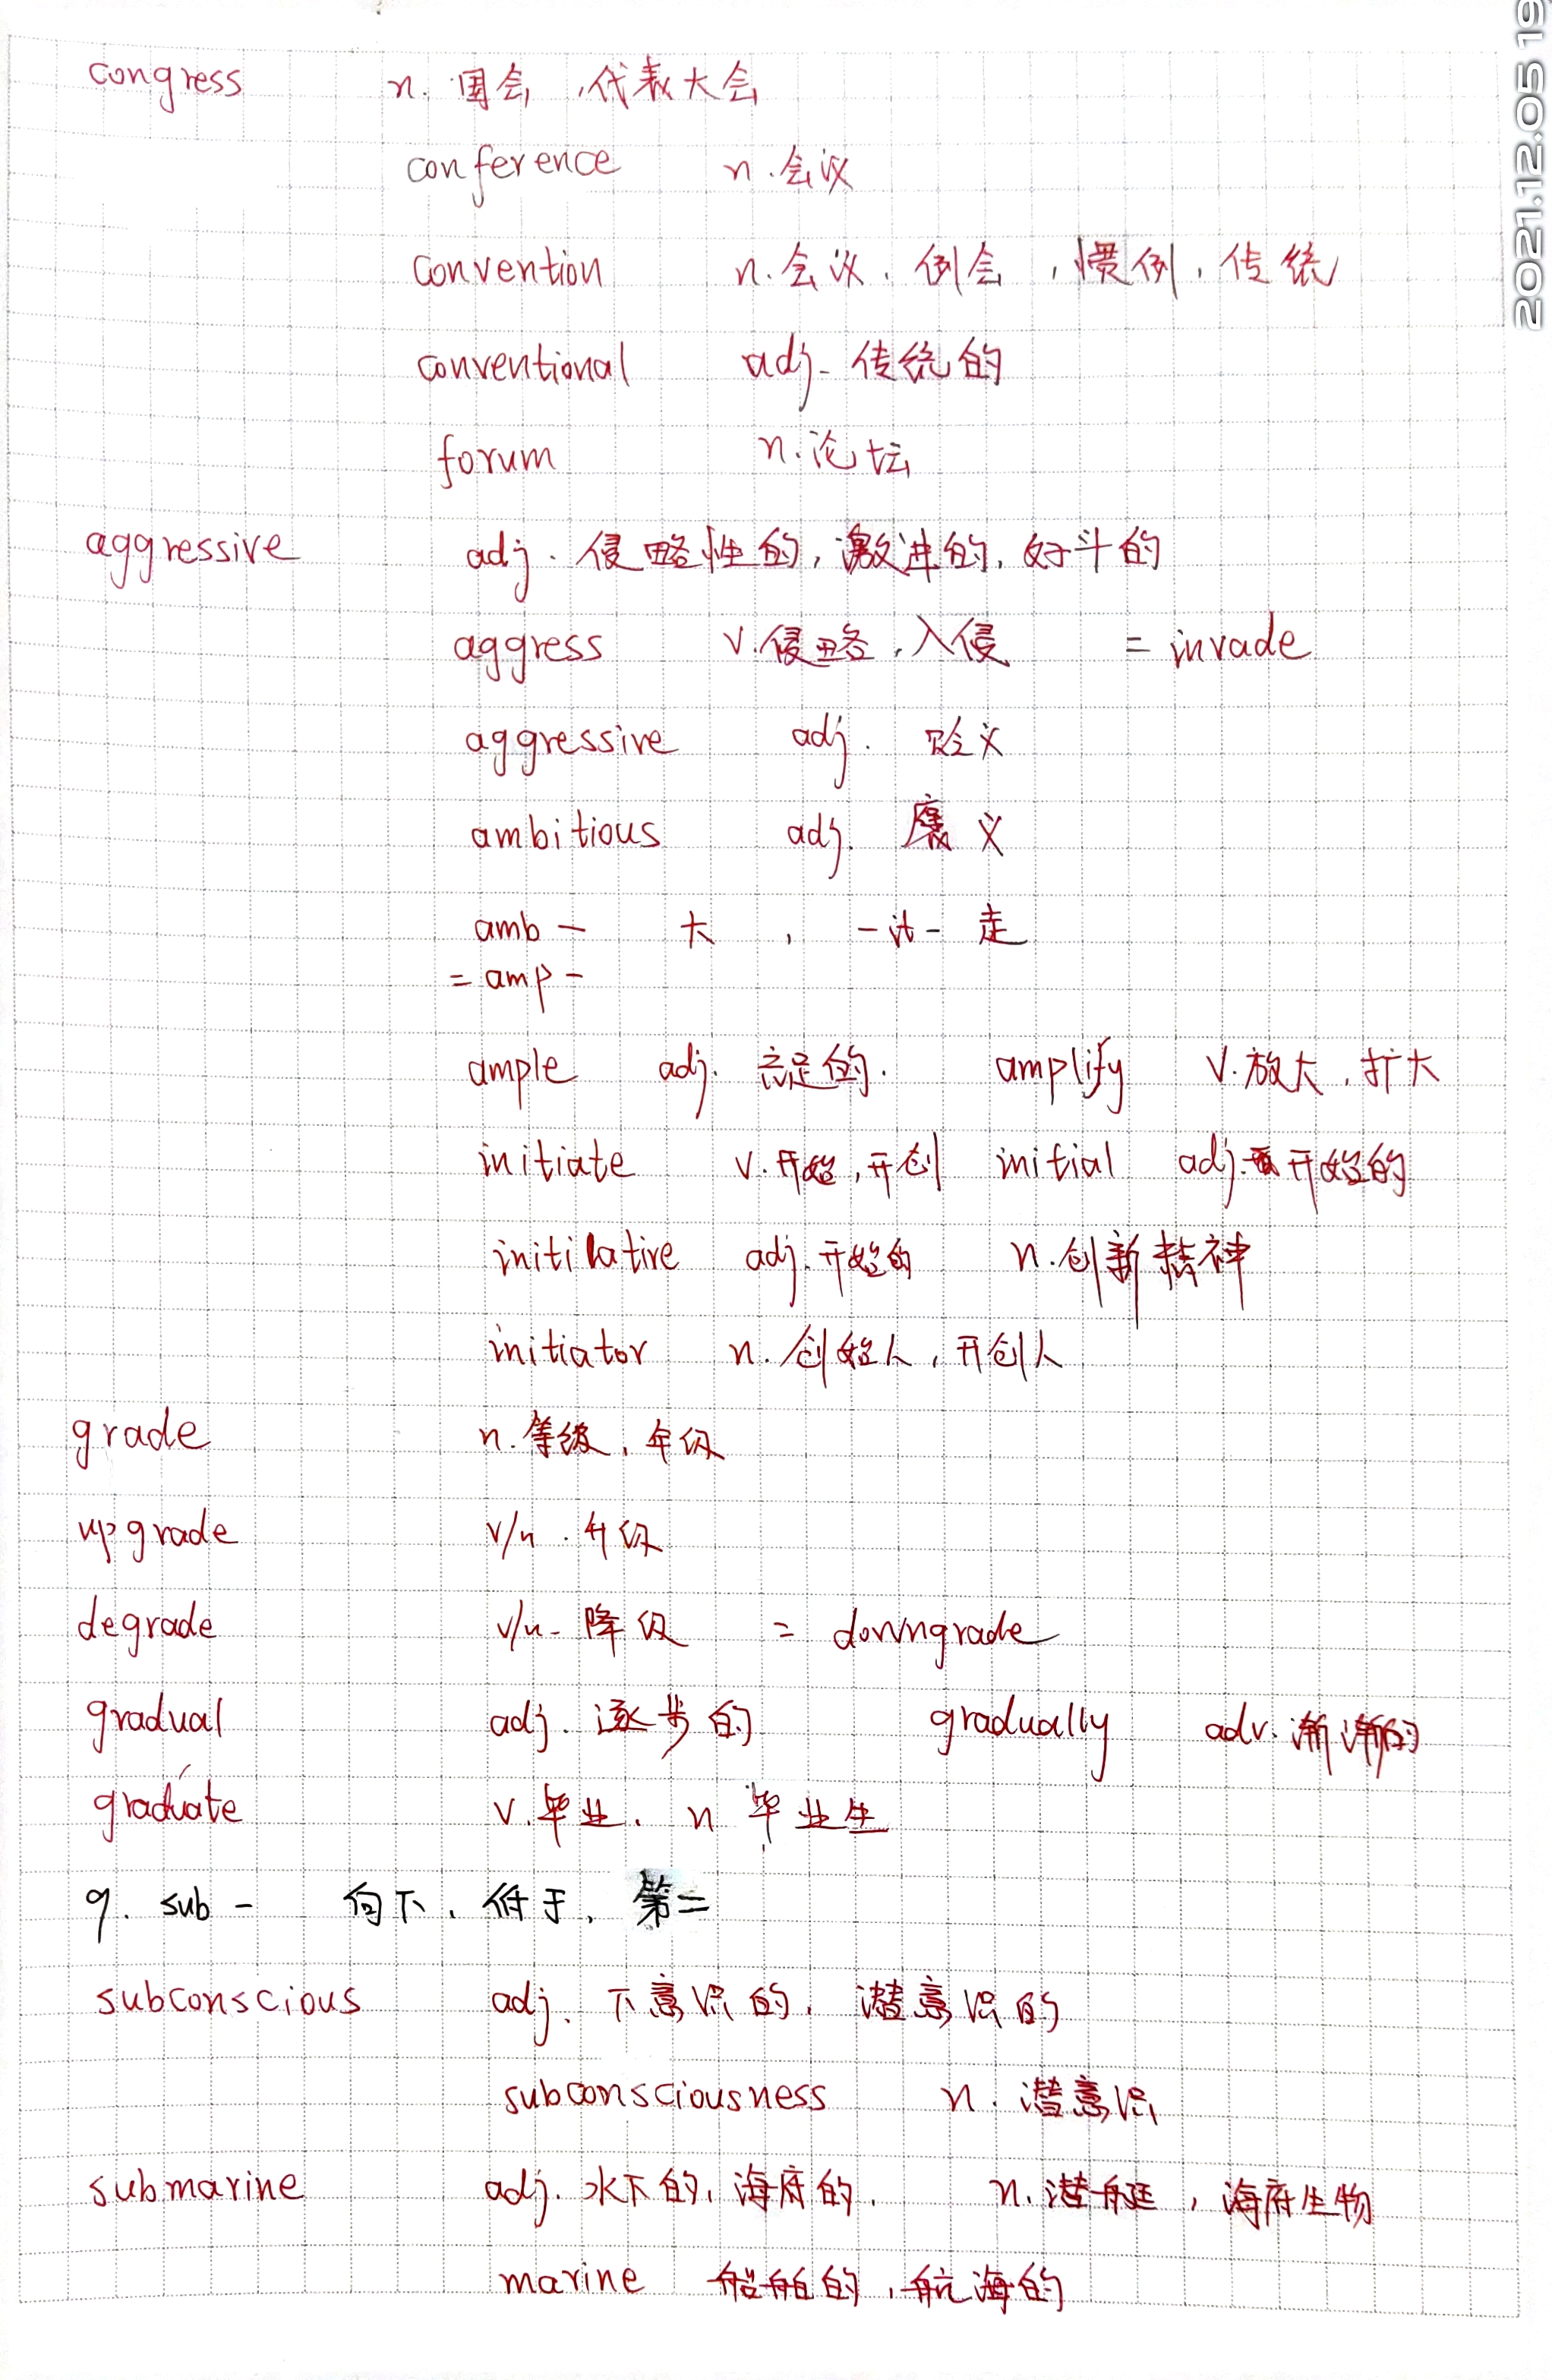 congress n. 国会，代表大会
conference n. 会议
convention n. 会议，例会，惯例，传统
conventional adj. 传统的
forum n. 论坛
aggressive adj. 侵略性的，激进的，好斗的
aggress v. 侵略，入侵 = invade
aggressive adj. 贬义
ambitious adj. 义
amb- 大，-it- 走
= amp-
ample adj. 充足的. amplify v. 放大，扩大
initiate v. 开始，开创 initial adj. 开始的
initilative adj. 开始的 n. 创新精神
initiator n. 创始人，开创人
grade n. 等级，年级
upgrade v/n. 升级
degrade v/n. 降级 = downgrade
gradual adj. 逐步的 gradually adv. 渐渐的
graduate v. 毕业. n 毕业生
9. sub- 向下，低于，第二
subconscious adj. 下意识的，潜意识的
subconsciousness n. 潜意识
submarine adj. 水下的，海底的. n. 潜艇，海底生物
marine 船舶的，航海的
2021.12.05 19